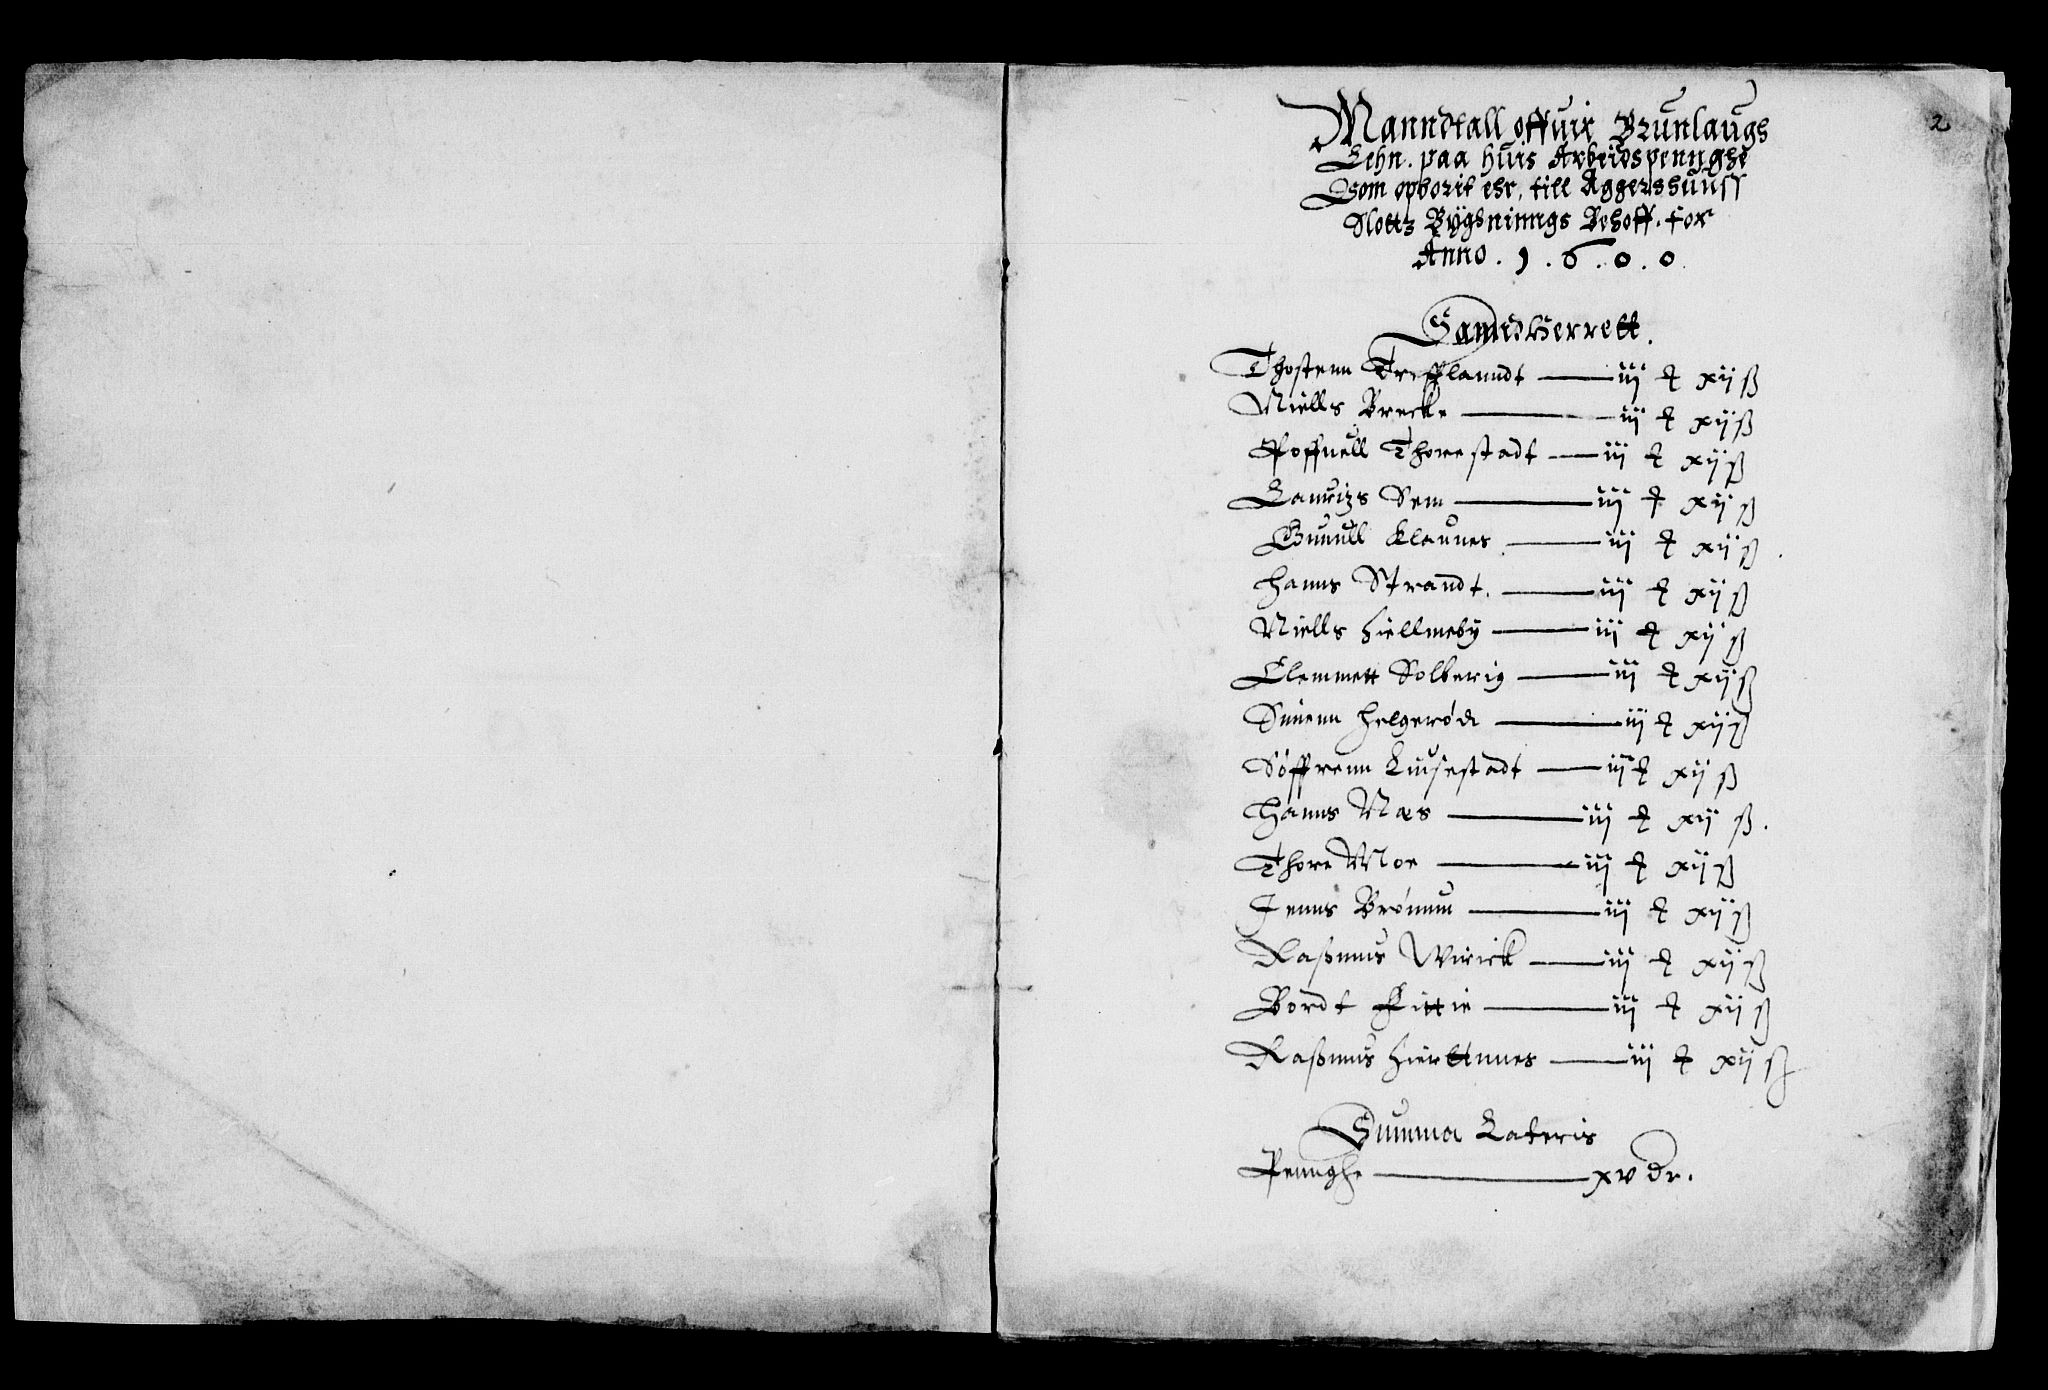 2
Manndtall offuir Brunlaugs
Lehn. paa huis Arbeidspennghe
Som opborit ehr, till Aggershuuss
Slottz Bÿghninngs Behoff. for
Anno . 1 . 6 . 0 . 0
Sanndherrett.
Thostenn Trefflanndt — iij ₰ xij ß
Niells Brecke — iij ₰ xij ß
Poffuell Thorestadt — iij ₰ xij ß
Lauritzs Sem — iij ₰ xij ß
Gunull Klaunes — iij ₰ xij ß
Hanns Strandt. — iij ₰ xij ß
Niells hiellmebÿ — iij ₰ xij ß
Clemmett Solberig — iij ₰ xij ß
Suuenn helgerødt — iij ₰ xij ß
Søffrenn Liusestadt — iij ₰ xij ß
Hanns Næs — iij ₰ xij ß.
Thore Moe — iij ₰ xij ß
Jenns Brønnum — iij ₰ xij ß
Rasmus Wirick — iij ₰ xij ß
Bordt Fittie — iij ₰ xij ß
Rasmus hierttnnes — iij ₰ xij ß
Summa Lateris
Pennghe — xv dr.